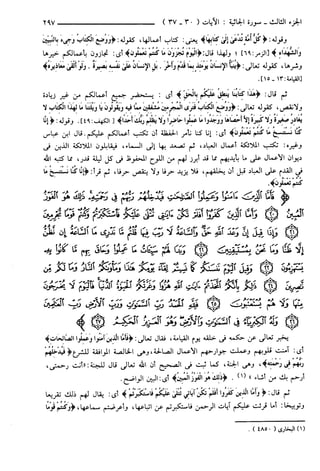 الجزء الثالث - سورة الجاثية : الآيات ( ٣٠ - ٣٧ ) ٢٩٧
وقوله : ﴿ كُلُّ أُمَّةٍ تُدْعَىٰ إِلَىٰ كِتَابِهَا ﴾ يعنى : كتاب أعمالها، كقوله : ﴿ وَوُضِعَ الْكِتَابُ وَجِيءَ بِالنَّبِيِّينَ
وَالشُّهَدَاءِ ﴾ [الزمر: ٦٩] ؛ ولهذا قال: ﴿ الْيَوْمَ تُجْزَوْنَ مَا كُنتُمْ تَعْمَلُونَ ﴾ أى : تجازون بأعمالكم خيرها
وشرها، كقوله تعالى: ﴿ يُنَبَّأُ الْإِنسَانُ يَوْمَئِذٍ بِمَا قَدَّمَ وَأَخَّرَ . بَلِ الْإِنسَانُ عَلَىٰ نَفْسِهِ بَصِيرَةٌ . وَلَوْ أَلْقَىٰ مَعَاذِيرَهُ ﴾
[القيامة: ١٣ - ١٥].
ثم قال : ﴿ هَٰذَا كِتَابُنَا يَنطِقُ عَلَيْكُم بِالْحَقِّ ﴾ أى : يستحضر جميع أعمالكم من غير زيادة
ولا نقص، كقوله تعالى: ﴿ وَوُضِعَ الْكِتَابُ فَتَرَى الْمُجْرِمِينَ مُشْفِقِينَ مِمَّا فِيهِ وَيَقُولُونَ يَا وَيْلَتَنَا مَالِ هَٰذَا الْكِتَابِ لَا
يُغَادِرُ صَغِيرَةً وَلَا كَبِيرَةً إِلَّا أَحْصَاهَا وَوَجَدُوا مَا عَمِلُوا حَاضِرًا وَلَا يَظْلِمُ رَبُّكَ أَحَدًا ﴾ [الكهف: ٤٩]. وقوله : ﴿ إِنَّا
كُنَّا نَسْتَنسِخُ مَا كُنتُمْ تَعْمَلُونَ ﴾ أى : إنا كنا نأمر الحفظة أن تكتب أعمالكم عليكم. قال ابن عباس
وغيره: تكتب الملائكة أعمال العباد، ثم تصعد بها إلى السماء، فيقابلون الملائكة الذين فى
ديوان الأعمال على ما بأيديهم مما قد أبرز لهم من اللوح المحفوظ فى كل ليلة قدر، مما كتبه الله
فى القدم على العباد قبل أن يخلقهم، فلا يزيد حرفا ولا ينقص حرفا، ثم قرأ: ﴿ إِنَّا كُنَّا نَسْتَنسِخُ مَا
كُنتُمْ تَعْمَلُونَ ﴾.
﴿ فَأَمَّا الَّذِينَ ءَامَنُوا وَعَمِلُوا الصَّالِحَاتِ فَيُدْخِلُهُمْ رَبُّهُمْ فِي رَحْمَتِهِ ذَٰلِكَ هُوَ الْفَوْزُ
الْمُبِينُ ﴿٣٠﴾ وَأَمَّا الَّذِينَ كَفَرُوا أَفَلَمْ تَكُنْ ءَايَاتِي تُتْلَىٰ عَلَيْكُمْ فَاسْتَكْبَرْتُمْ وَكُنتُمْ قَوْمًا مُّجْرِمِينَ
﴿٣١﴾ وَإِذَا قِيلَ إِنَّ وَعْدَ اللَّهِ حَقٌّ وَالسَّاعَةُ لَا رَيْبَ فِيهَا قُلْتُم مَّا نَدْرِي مَا السَّاعَةُ إِن نَّظُنُّ
إِلَّا ظَنًّا وَمَا نَحْنُ بِمُسْتَيْقِنِينَ ﴿٣٢﴾ وَبَدَا لَهُمْ سَيِّئَاتُ مَا عَمِلُوا وَحَاقَ بِهِم مَّا كَانُوا بِهِ
يَسْتَهْزِءُونَ ﴿٣٣﴾ وَقِيلَ الْيَوْمَ نَنسَاكُمْ كَمَا نَسِيتُمْ لِقَاءَ يَوْمِكُمْ هَٰذَا وَمَأْوَاكُمُ النَّارُ وَمَا لَكُم مِّن
نَّاصِرِينَ ﴿٣٤﴾ ذَٰلِكُم بِأَنَّكُمُ اتَّخَذْتُمْ ءَايَاتِ اللَّهِ هُزُوًا وَغَرَّتْكُمُ الْحَيَاةُ الدُّنْيَا فَالْيَوْمَ لَا يُخْرَجُونَ
مِنْهَا وَلَا هُمْ يُسْتَعْتَبُونَ ﴿٣٥﴾ فَلِلَّهِ الْحَمْدُ رَبِّ السَّمَاوَاتِ وَرَبِّ الْأَرْضِ رَبِّ الْعَالَمِينَ
﴿٣٦﴾ وَلَهُ الْكِبْرِيَاءُ فِي السَّمَاوَاتِ وَالْأَرْضِ وَهُوَ الْعَزِيزُ الْحَكِيمُ ﴿٣٧﴾
يخبر تعالى عن حكمه فى خلقه يوم القيامة، فقال تعالى: ﴿ فَأَمَّا الَّذِينَ آمَنُوا وَعَمِلُوا الصَّالِحَاتِ ﴾
أى: آمنت قلوبهم وعملت جوارحهم الأعمال الصالحة، وهى الخالصة الموافقة للشرع ﴿ فَيُدْخِلُهُمْ
رَبُّهُمْ فِي رَحْمَتِهِ ﴾، وهى الجنة، كما ثبت فى الصحيح أن الله تعالى قال للجنة: «أنت رحمتى،
أرحم بك من أشاء » (١) . ﴿ ذَٰلِكَ هُوَ الْفَوْزُ الْمُبِينُ ﴾ أى: البين الواضح.
ثم قال: ﴿ وَأَمَّا الَّذِينَ كَفَرُوا أَفَلَمْ تَكُنْ آيَاتِي تُتْلَىٰ عَلَيْكُمْ فَاسْتَكْبَرْتُمْ ﴾ أى: يقال لهم ذلك تقريعا
وتوبيخا: أما قرئت عليكم آيات الرحمن فاستكبرتم عن اتباعها، وأعرضتم عن سماعها، ﴿ وَكُنتُمْ قَوْمًا
(١) البخارى ( ٤٨٥٠ ) .